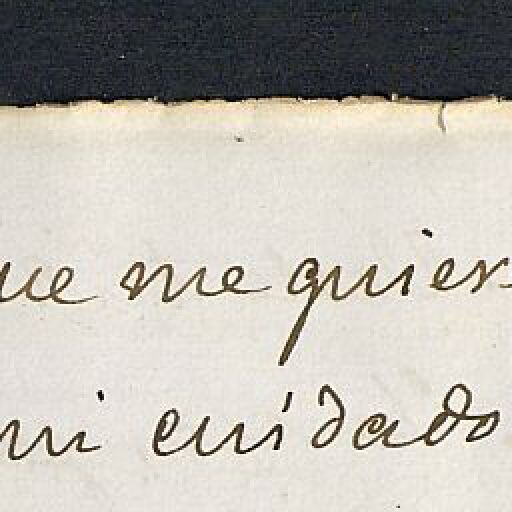 ue me quier
mi cuidado